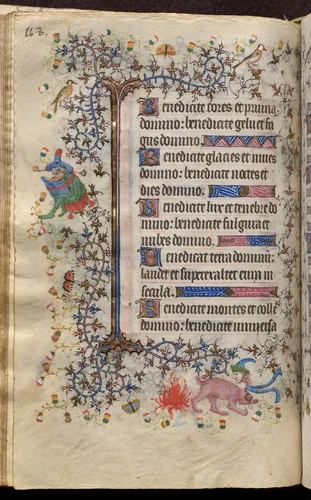 Benedicite rores et pruina
domino: benedicite gelu et fri
gus domino.
Benedicite glacies et niues
domino: benedicite noctes et
dies domino.
Benedicite lux et tenebre do
mino: benedicite fulgura et
nubes domino.
Benedicat terra dominū:
laudet et superexaltet eum in
secula.
Benedicite montes et colles
domino: benedicite uniuersa